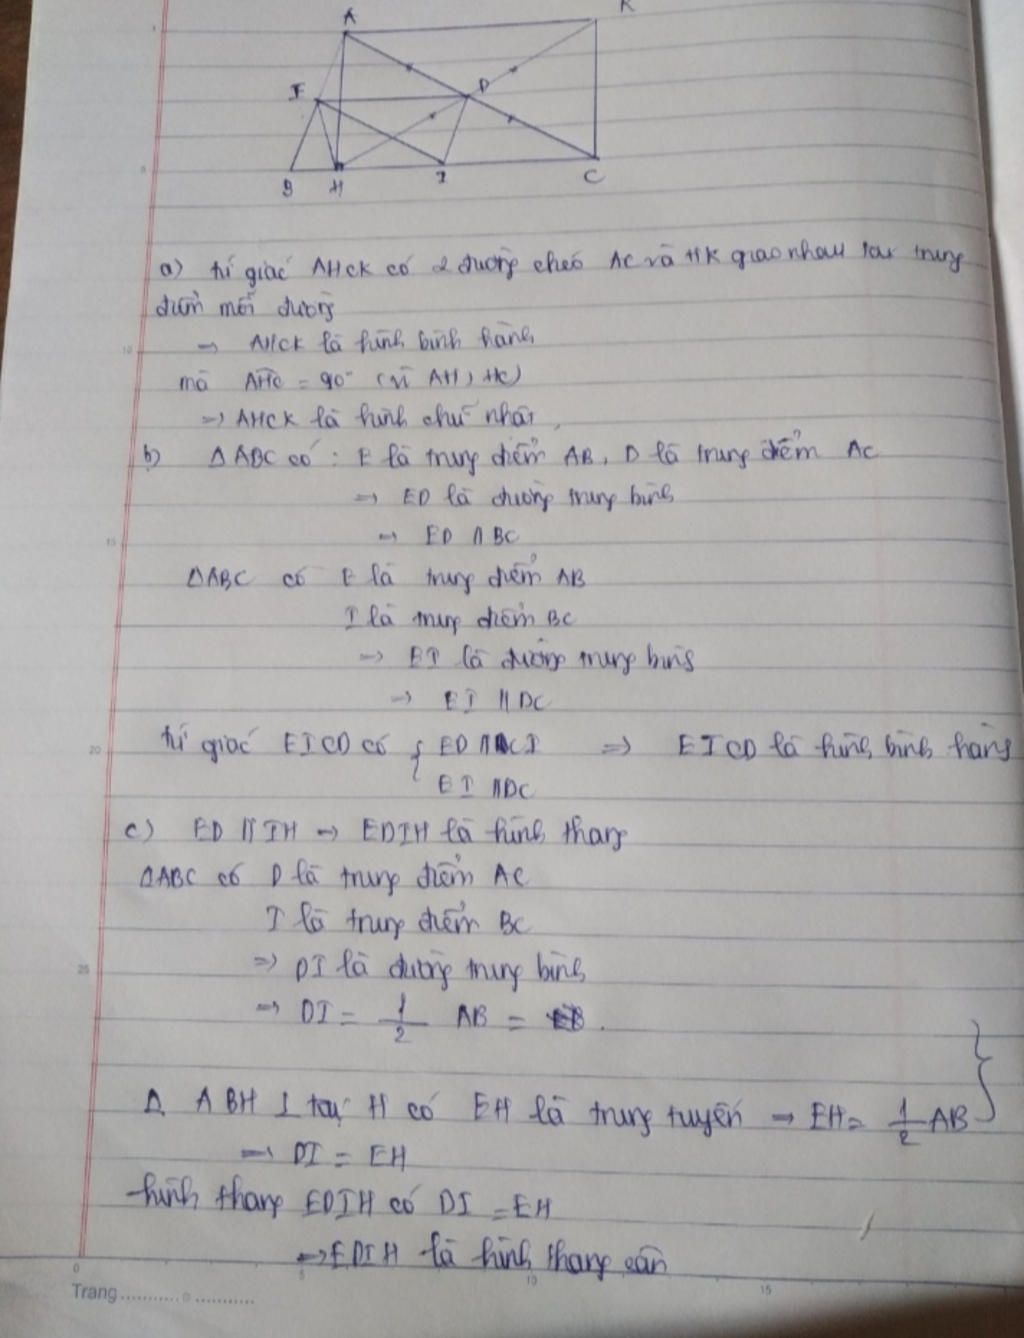 A
K
E
D
B
H
I
C
a) tứ giác AHCK có 2 đường chéo AC và HK giao nhau tại trung
điểm mỗi đường
⇒ AHCK là hình bình hành
mà AHC = 90° (vì AH ⊥ HC)
⇒ AHCK là hình chữ nhật
b) Δ ABC có : E là trung điểm AB, D là trung điểm AC
⇒ ED là đường trung bình
⇒ ED // BC
ΔABC có E là trung điểm AB
I là trung điểm BC
⇒ EI là đường trung bình
⇒ EI // DC
tứ giác EICD có { ED // CI ⇒ EICD là hình bình hành
EI // DC
c) ED // IH ⇒ EDIH là hình thang
ΔABC có D là trung điểm AC
I là trung điểm BC
⇒ DI là đường trung bình
⇒ DI = 1/2 AB = .
Δ ABH ⊥ tại H có EH là trung tuyến ⇒ EH = 1/2 AB }
⇒ DI = EH
hình thang EDIH có DI = EH
⇒ EDIH là hình thang cân
Trang